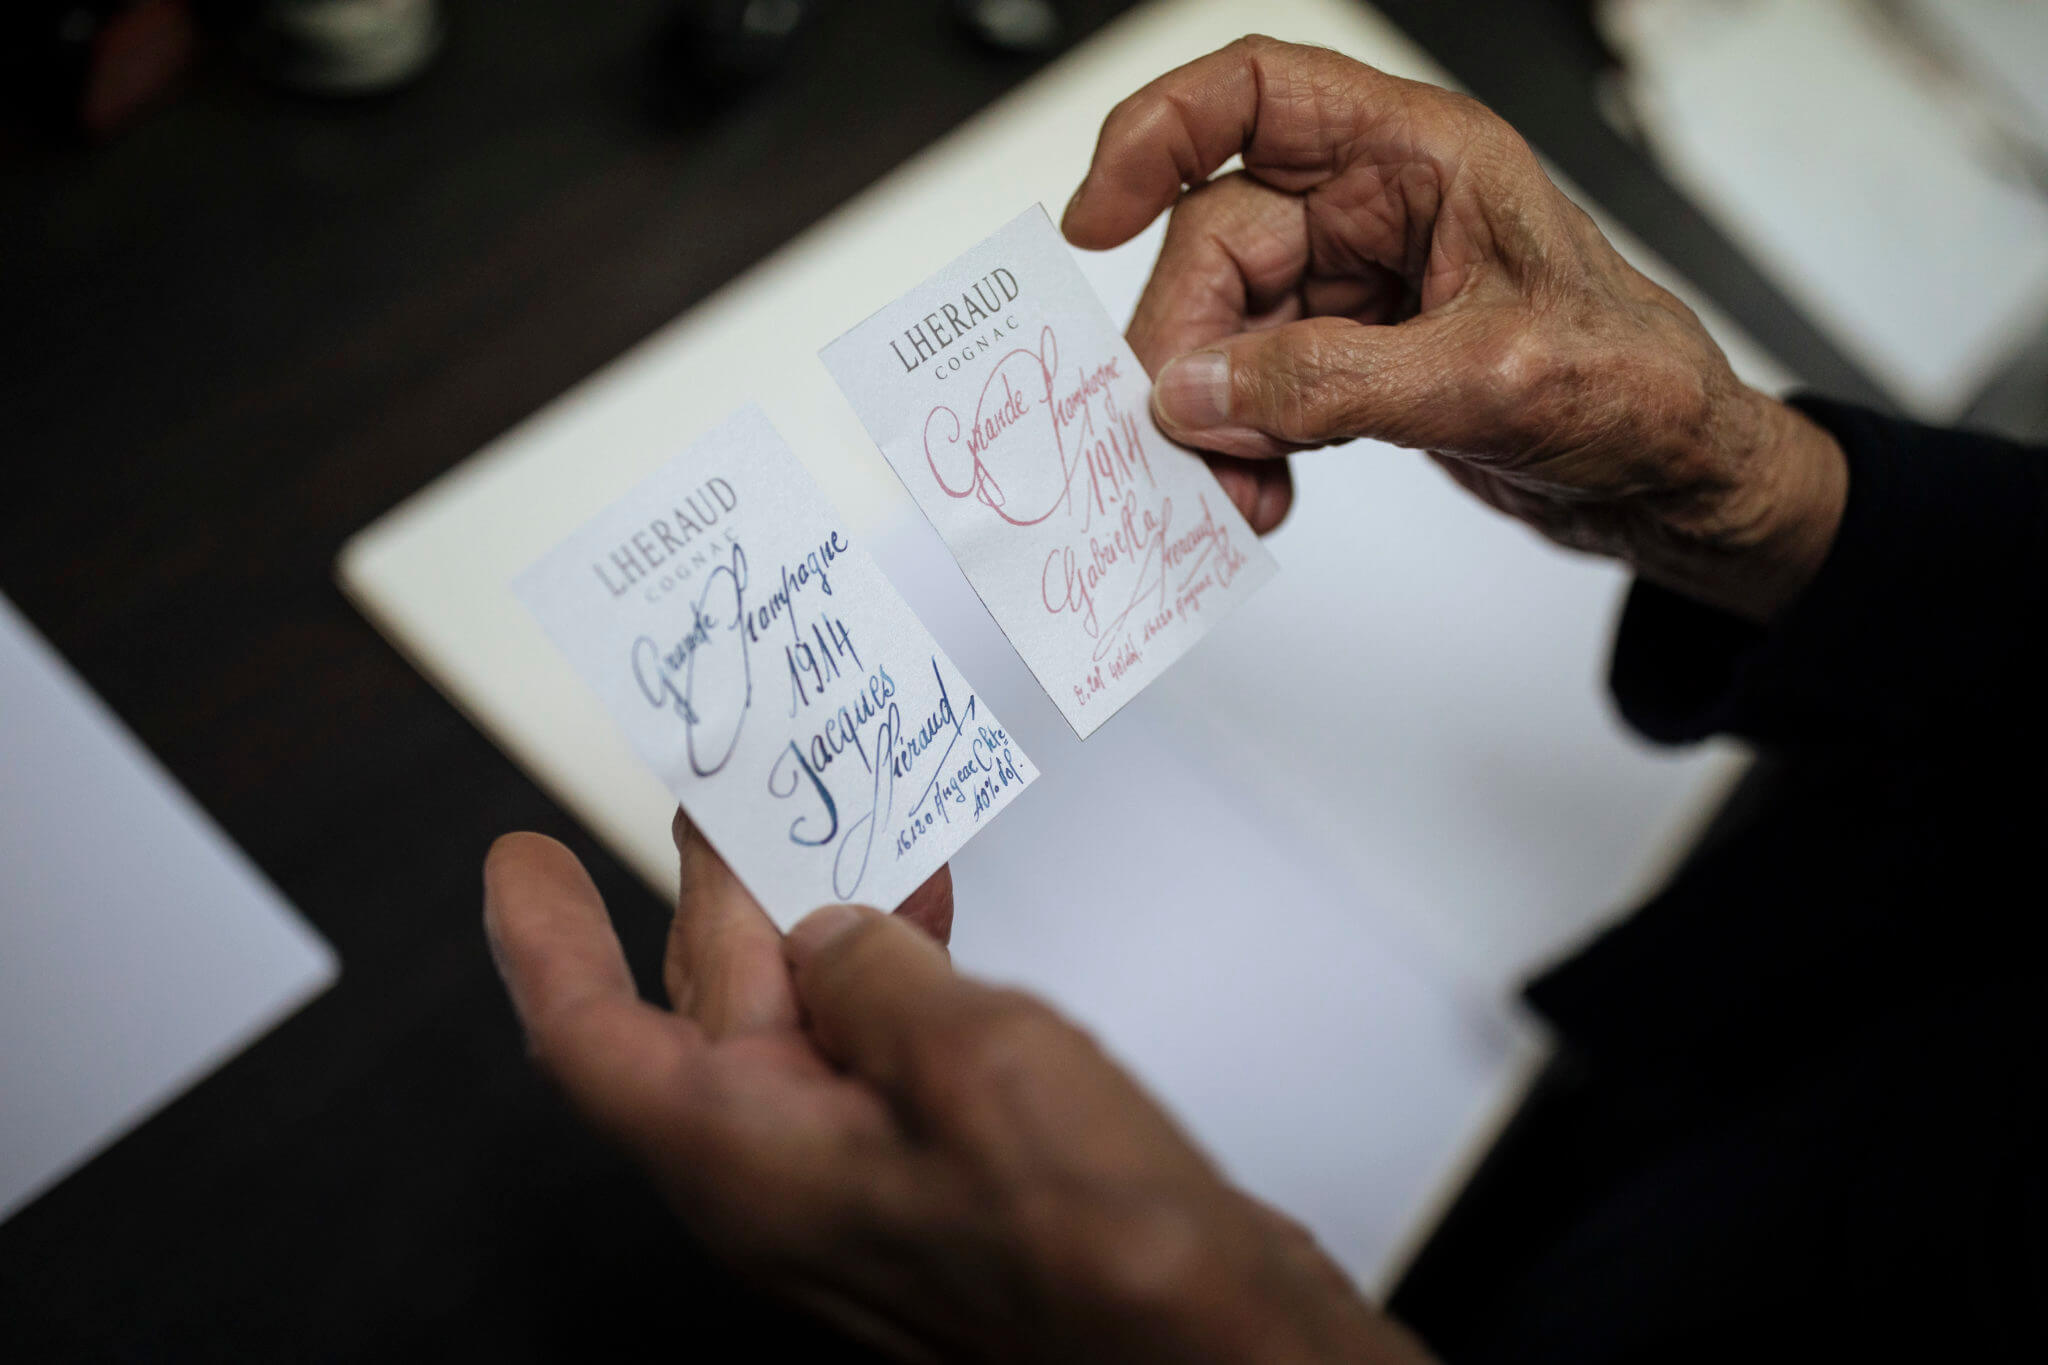 LHERAUD
COGNAC
Grande Champagne
1914
Jacques
Lhéraud
16120 Angeac Chte
40% Vol.
LHERAUD
COGNAC
Grande Champagne
1914
Gabriella
Lheraud
16120 Angeac Chte
40% Vol.